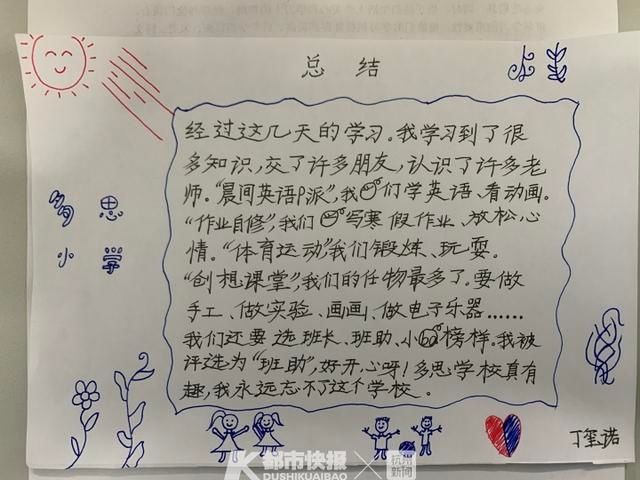 总 结
经过这几天的学习。我学习到了很
多知识,交了许多朋友,认识了许多老
师。“晨间英语P派”,我们学英语、看动画。
“作业自修”,我们写寒假作业、放松心
情。“体育运动”我们锻炼、玩耍。
“创想课堂”,我们的任物最多了。要做
手工、做实验、画画、做电子乐器……
我们还要选班长、班助、小榜样。我被
评选为“班助”,好开心呀!多思学校真有
趣,我永远忘不了这个学校。
多思
小学
丁玺诺
都市快报
DUSHIKUAIBAO
杭州
新闻